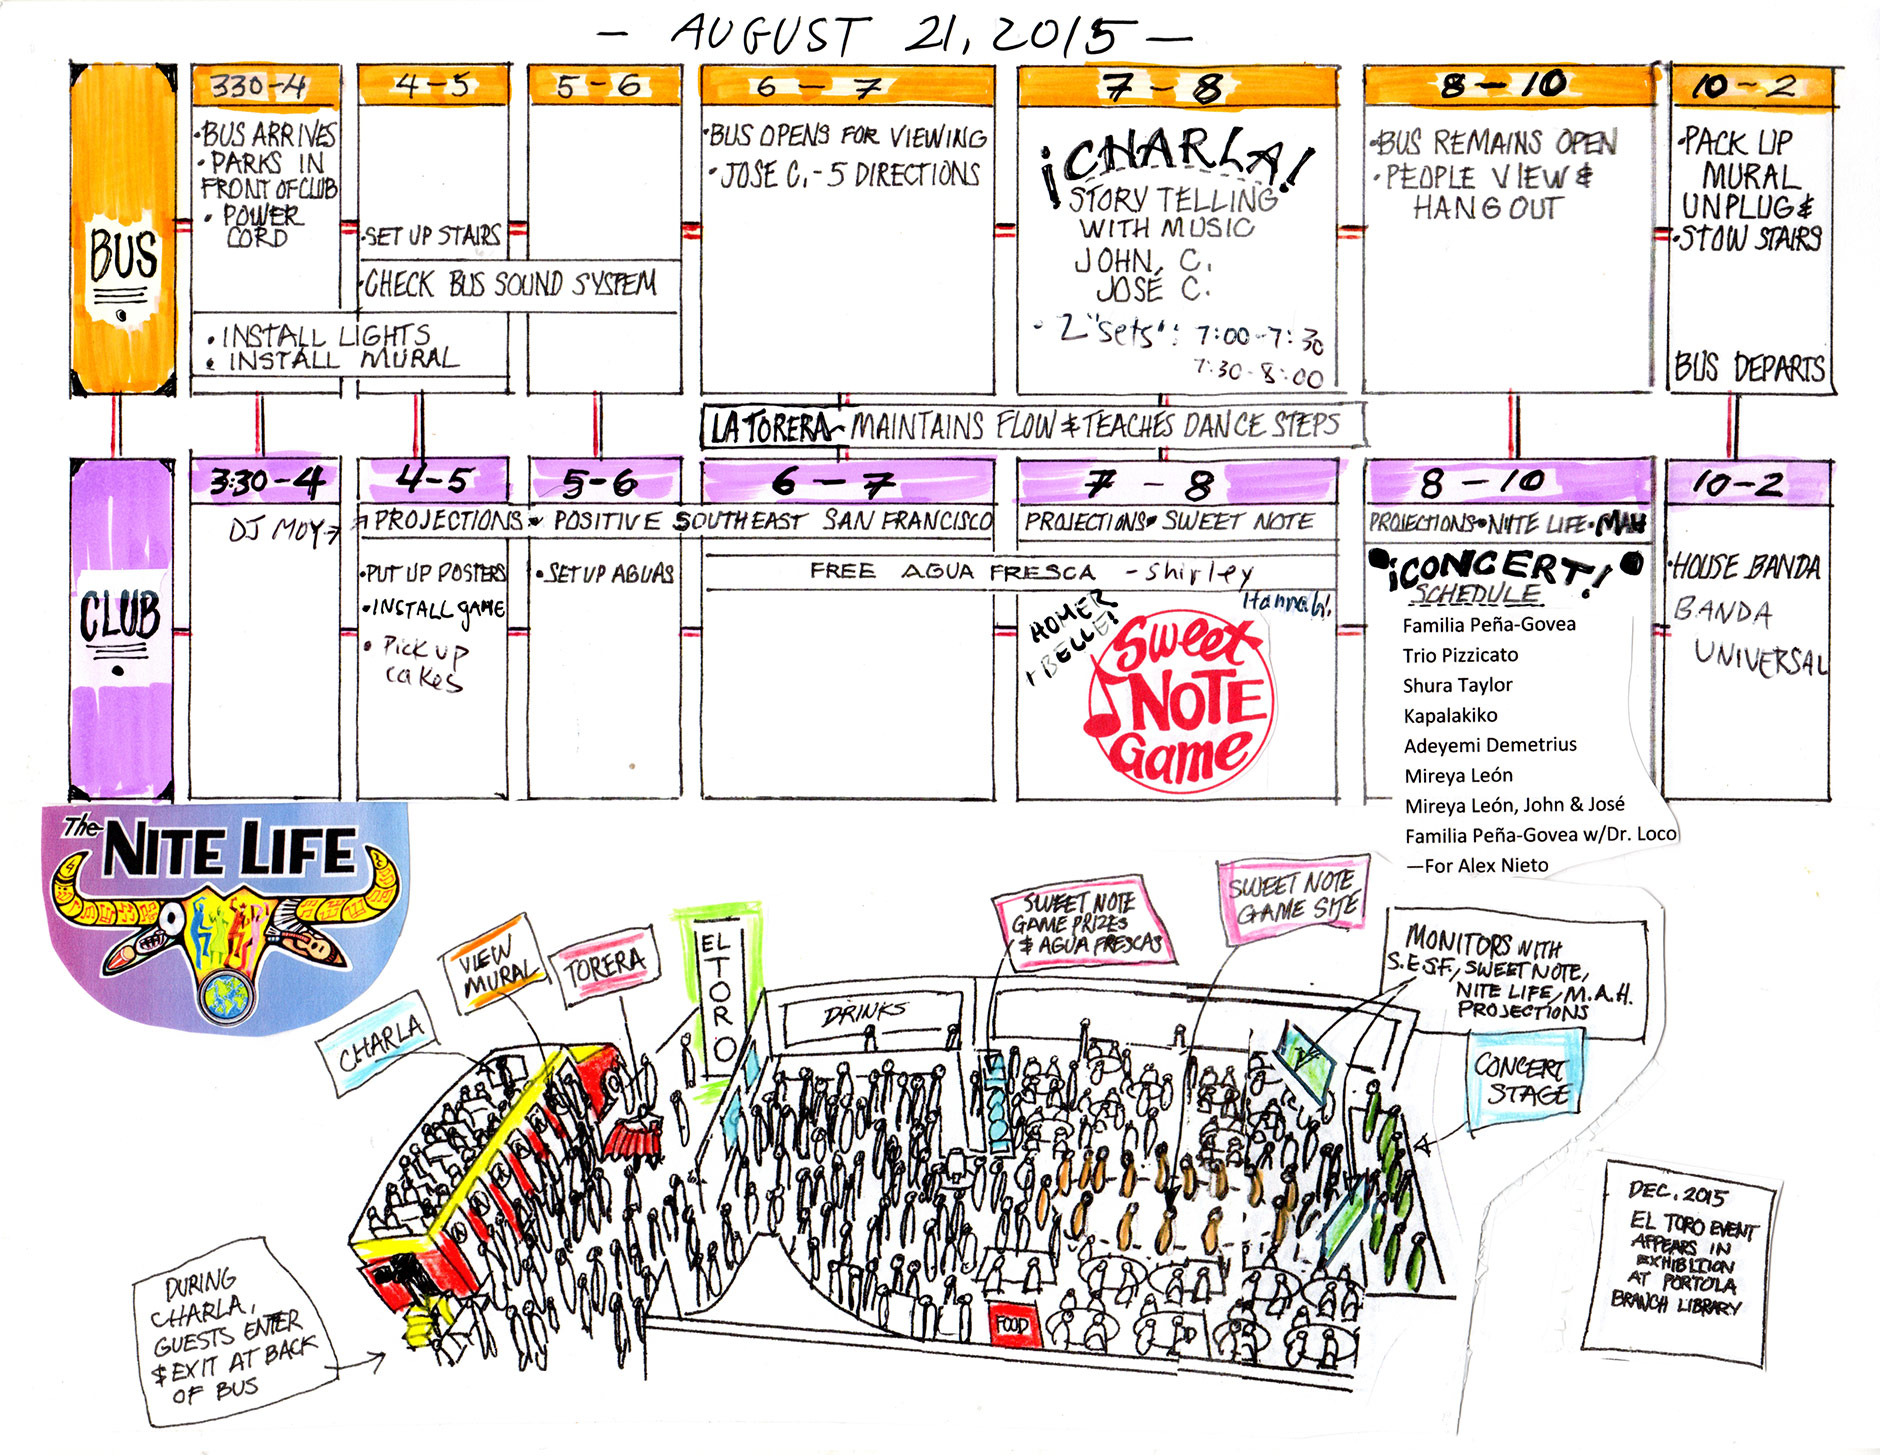 - AUGUST 21, 2015 -
BUS
330-4
4-5
5-6
6-7
7-8
8-10
10-2
• BUS ARRIVES
• PARKS IN
FRONT OF CLUB
• POWER
CORD
• SET UP STAIRS
• CHECK BUS SOUND SYSTEM
• INSTALL LIGHTS
• INSTALL MURAL
• BUS OPENS FOR VIEWING
• JOSE C. - 5 DIRECTIONS
¡CHARLA!
STORY TELLING
WITH MUSIC
JOHN, C.
JOSÉ C.
• 2 "sets": 7:00-7:30
7:30-8:00
• BUS REMAINS OPEN
• PEOPLE VIEW &
HANG OUT
• PACK UP
MURAL
UNPLUG &
• STOW STAIRS
BUS DEPARTS
LA TORERA - MAINTAINS FLOW & TEACHES DANCE STEPS
CLUB
3:30-4
4-5
5-6
6-7
7-8
8-10
10-2
DJ MOY →
PROJECTIONS • POSITIVE SOUTHEAST SAN FRANCISCO
• PUT UP POSTERS
• INSTALL GAME
• Pick up
cakes
• SET UP AGUAS
FREE AGUA FRESCA - Shirley
PROJECTIONS • SWEET NOTE
HOMER
+ BELLE!
Hannah!
Sweet
NOTE
Game
PROJECTIONS • NITE LIFE • MAH
• ¡CONCERT! •
SCHEDULE
Familia Peña-Govea
Trio Pizzicato
Shura Taylor
Kapalakiko
Adeyemi Demetrius
Mireya León
Mireya León, John & José
Familia Peña-Govea w/Dr. Loco
—For Alex Nieto
• HOUSE BANDA
BANDA
UNIVERSAL
The NITE LIFE
CHARLA
VIEW
MURAL
TORERA
EL
TORO
DRINKS
SWEET NOTE
GAME PRIZES
& AGUA FRESCAS
SWEET NOTE
GAME SITE
MONITORS WITH
S.E.S.F., SWEET NOTE,
NITE LIFE, M.A.H.
PROJECTIONS
CONCERT
STAGE
FOOD
DURING
CHARLA,
GUESTS ENTER
& EXIT AT BACK
OF BUS
DEC. 2015
EL TORO EVENT
APPEARS IN
EXHIBITION
AT PORTOLA
BRANCH LIBRARY